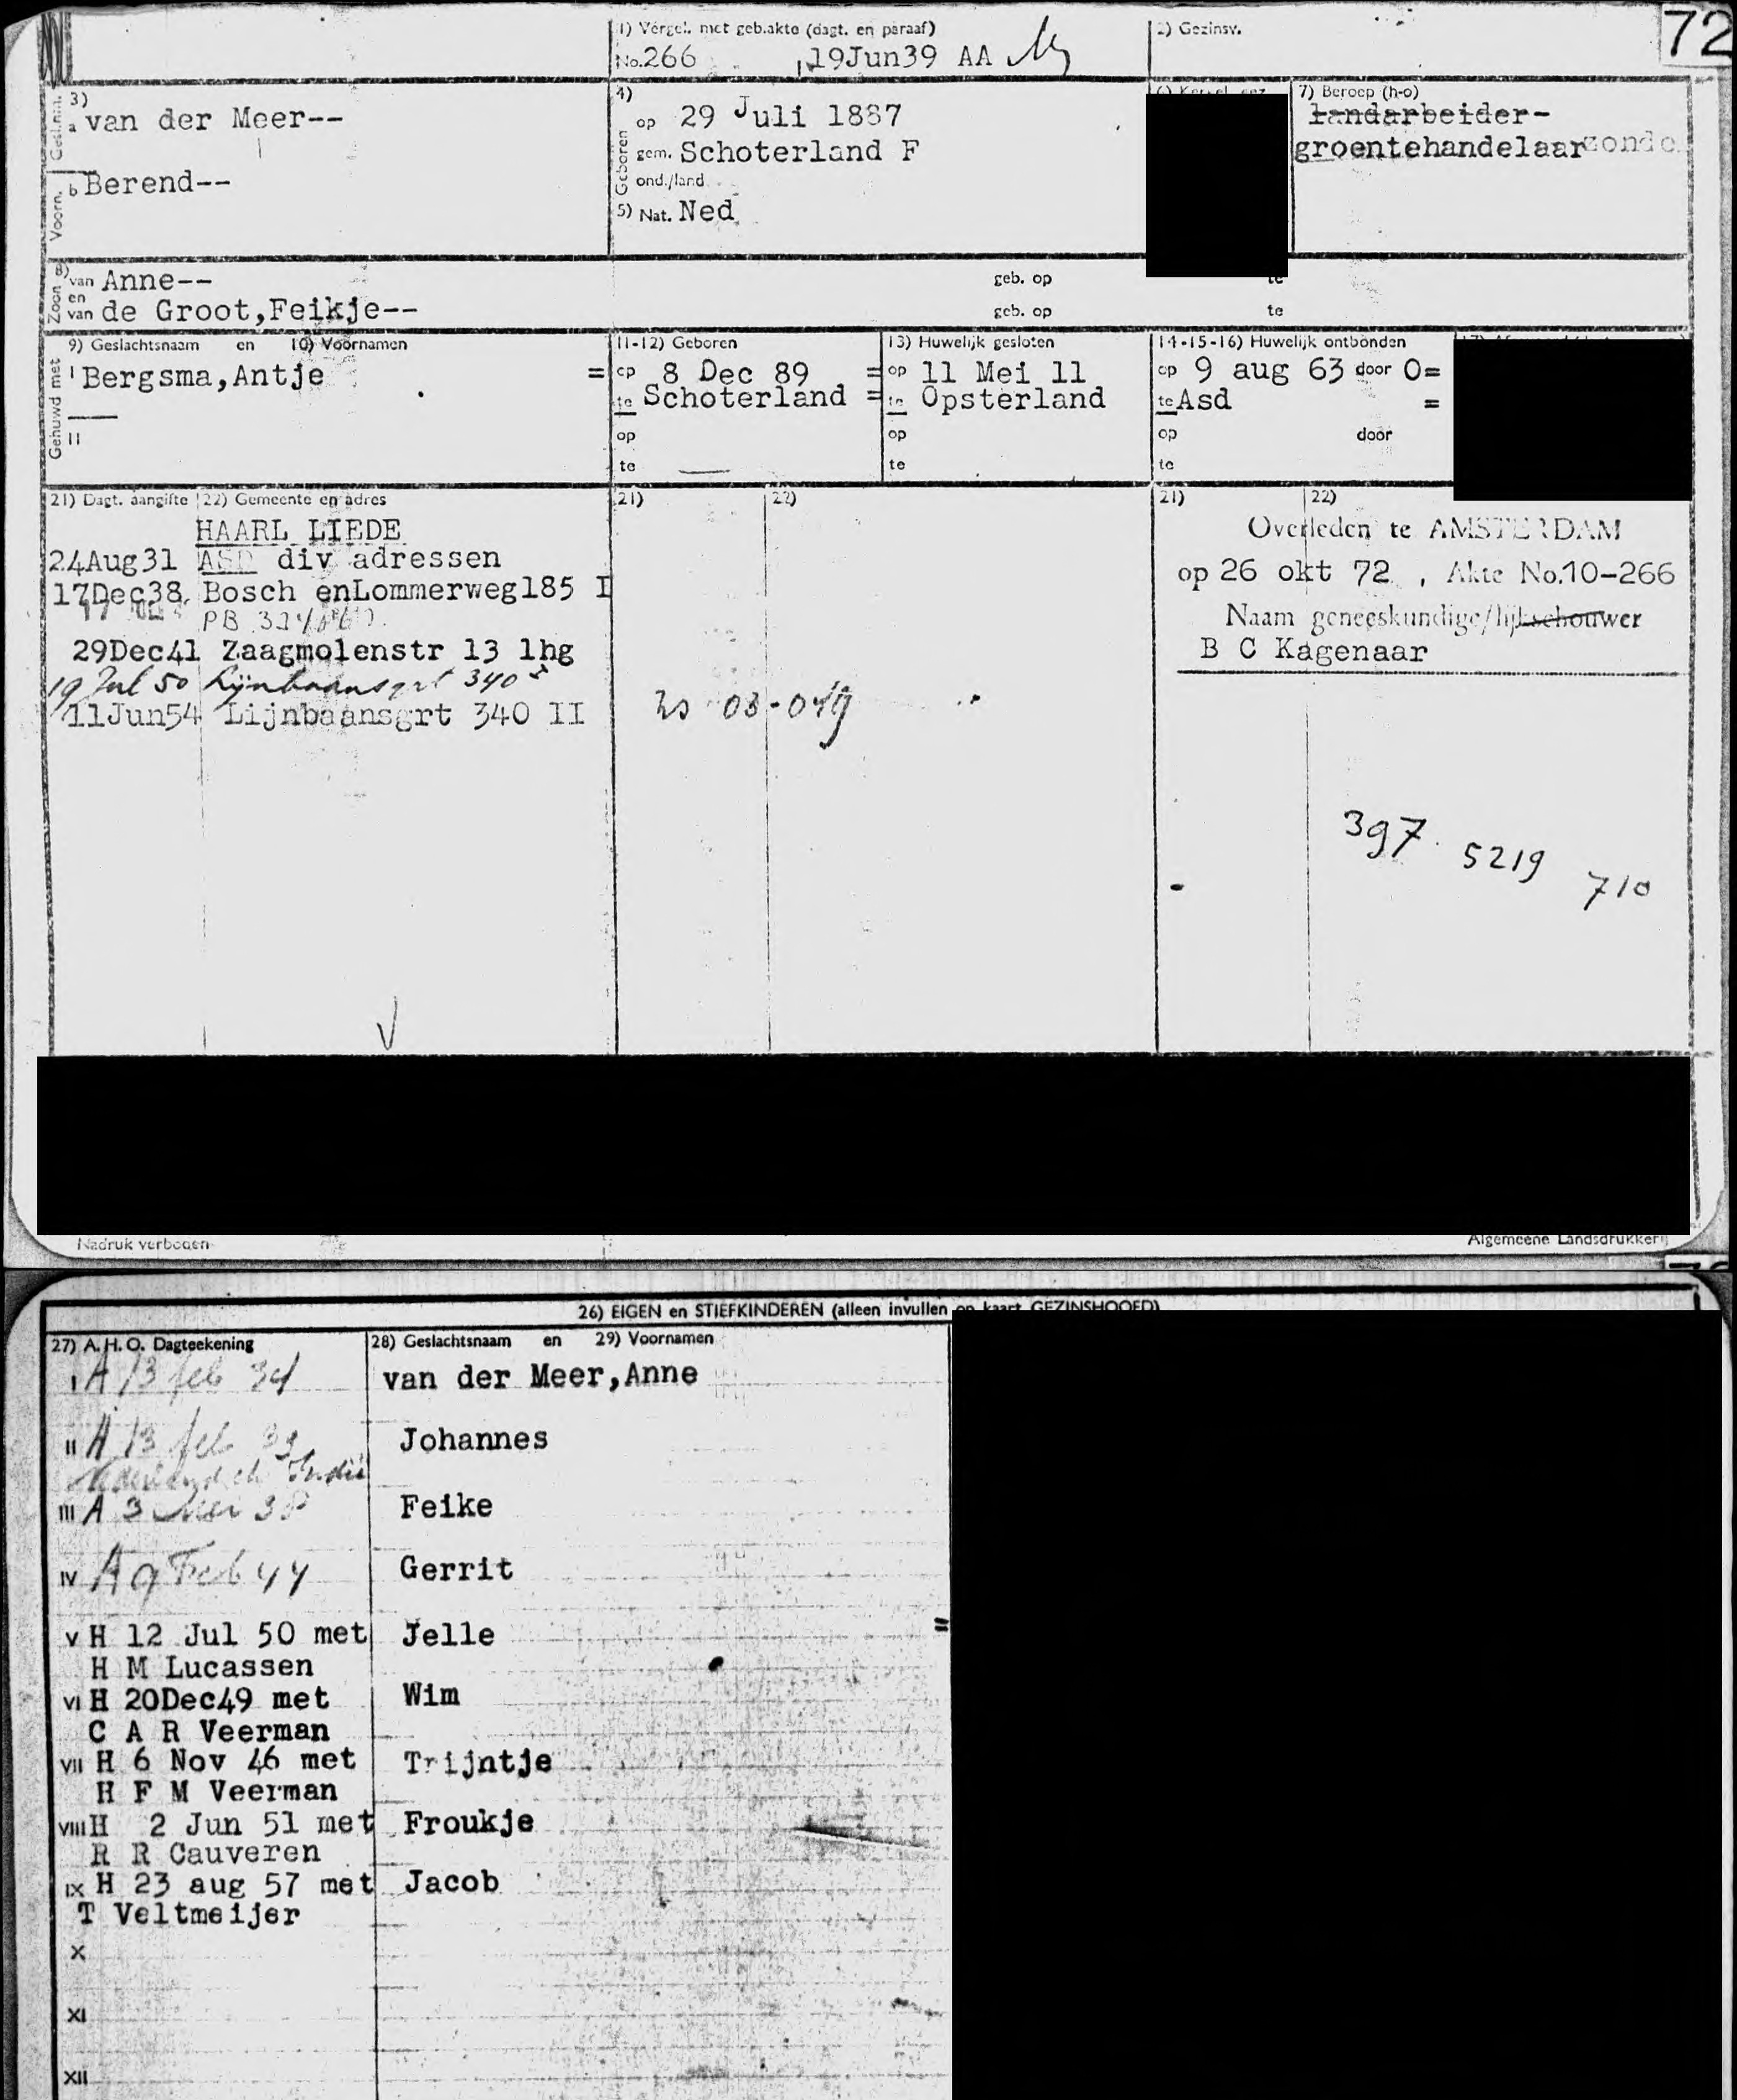 72
1) Vergel. met geb.akte (dagt. en paraaf)
No. 266 19Jun39 AA
2) Gezinsv.
3)
Gesl.nm. a van der Meer--
Voorn. b Berend--
4)
Geboren
op 29 Juli 1887
gem. Schoterland F
ond./land
5) Nat. Ned
7) Beroep (h-o)
landarbeider-
groentehandelaar zonde
8)
Zoon van Anne-- geb. op te
en
van de Groot,Feikje-- geb. op te
Gehuwd met
9) Geslachtsnaam en 10) Voornamen
I Bergsma,Antje =
II
11-12) Geboren
op 8 Dec 89 =
te Schoterland =
op
te
13) Huwelijk gesloten
op 11 Mei 11
te Opsterland
op
te
14-15-16) Huwelijk ontbonden
op 9 aug 63 door O=
te Asd =
op door
te
21) Dagt. aangifte 22) Gemeente en adres
HAARL LIEDE
24Aug31 ASD div adressen
17Dec38 Bosch enLommerweg185 I
PB
29Dec41 Zaagmolenstr 13 1hg
19 Jul 50 Lijnbaansgrt 340
11Jun54 Lijnbaansgrt 340 II
21) 22)
03-049
21) 22)
Overleden te AMSTERDAM
op 26 okt 72 , Akte No.10-266
Naam geneeskundige/lijkschouwer
B C Kagenaar
397 5219 710
Nadruk verboden
Algemeene Landsdrukkerij
26) EIGEN en STIEFKINDEREN (alleen invullen op kaart GEZINSHOOFD)
27) A. H. O. Dagteekening
28) Geslachtsnaam en 29) Voornamen
I A 13 feb 34 van der Meer,Anne
II A 13 feb Johannes
Nederlandsch Indië
III A 3 Mei 38 Feike
IV A 9 Feb 44 Gerrit
V H 12 Jul 50 met Jelle =
H M Lucassen
VI H 20Dec49 met Wim
C A R Veerman
VII H 6 Nov 46 met Trijntje
H F M Veerman
VIII H 2 Jun 51 met Froukje
R R Cauveren
IX H 23 aug 57 met Jacob
T Veltmeijer
X
XI
XII